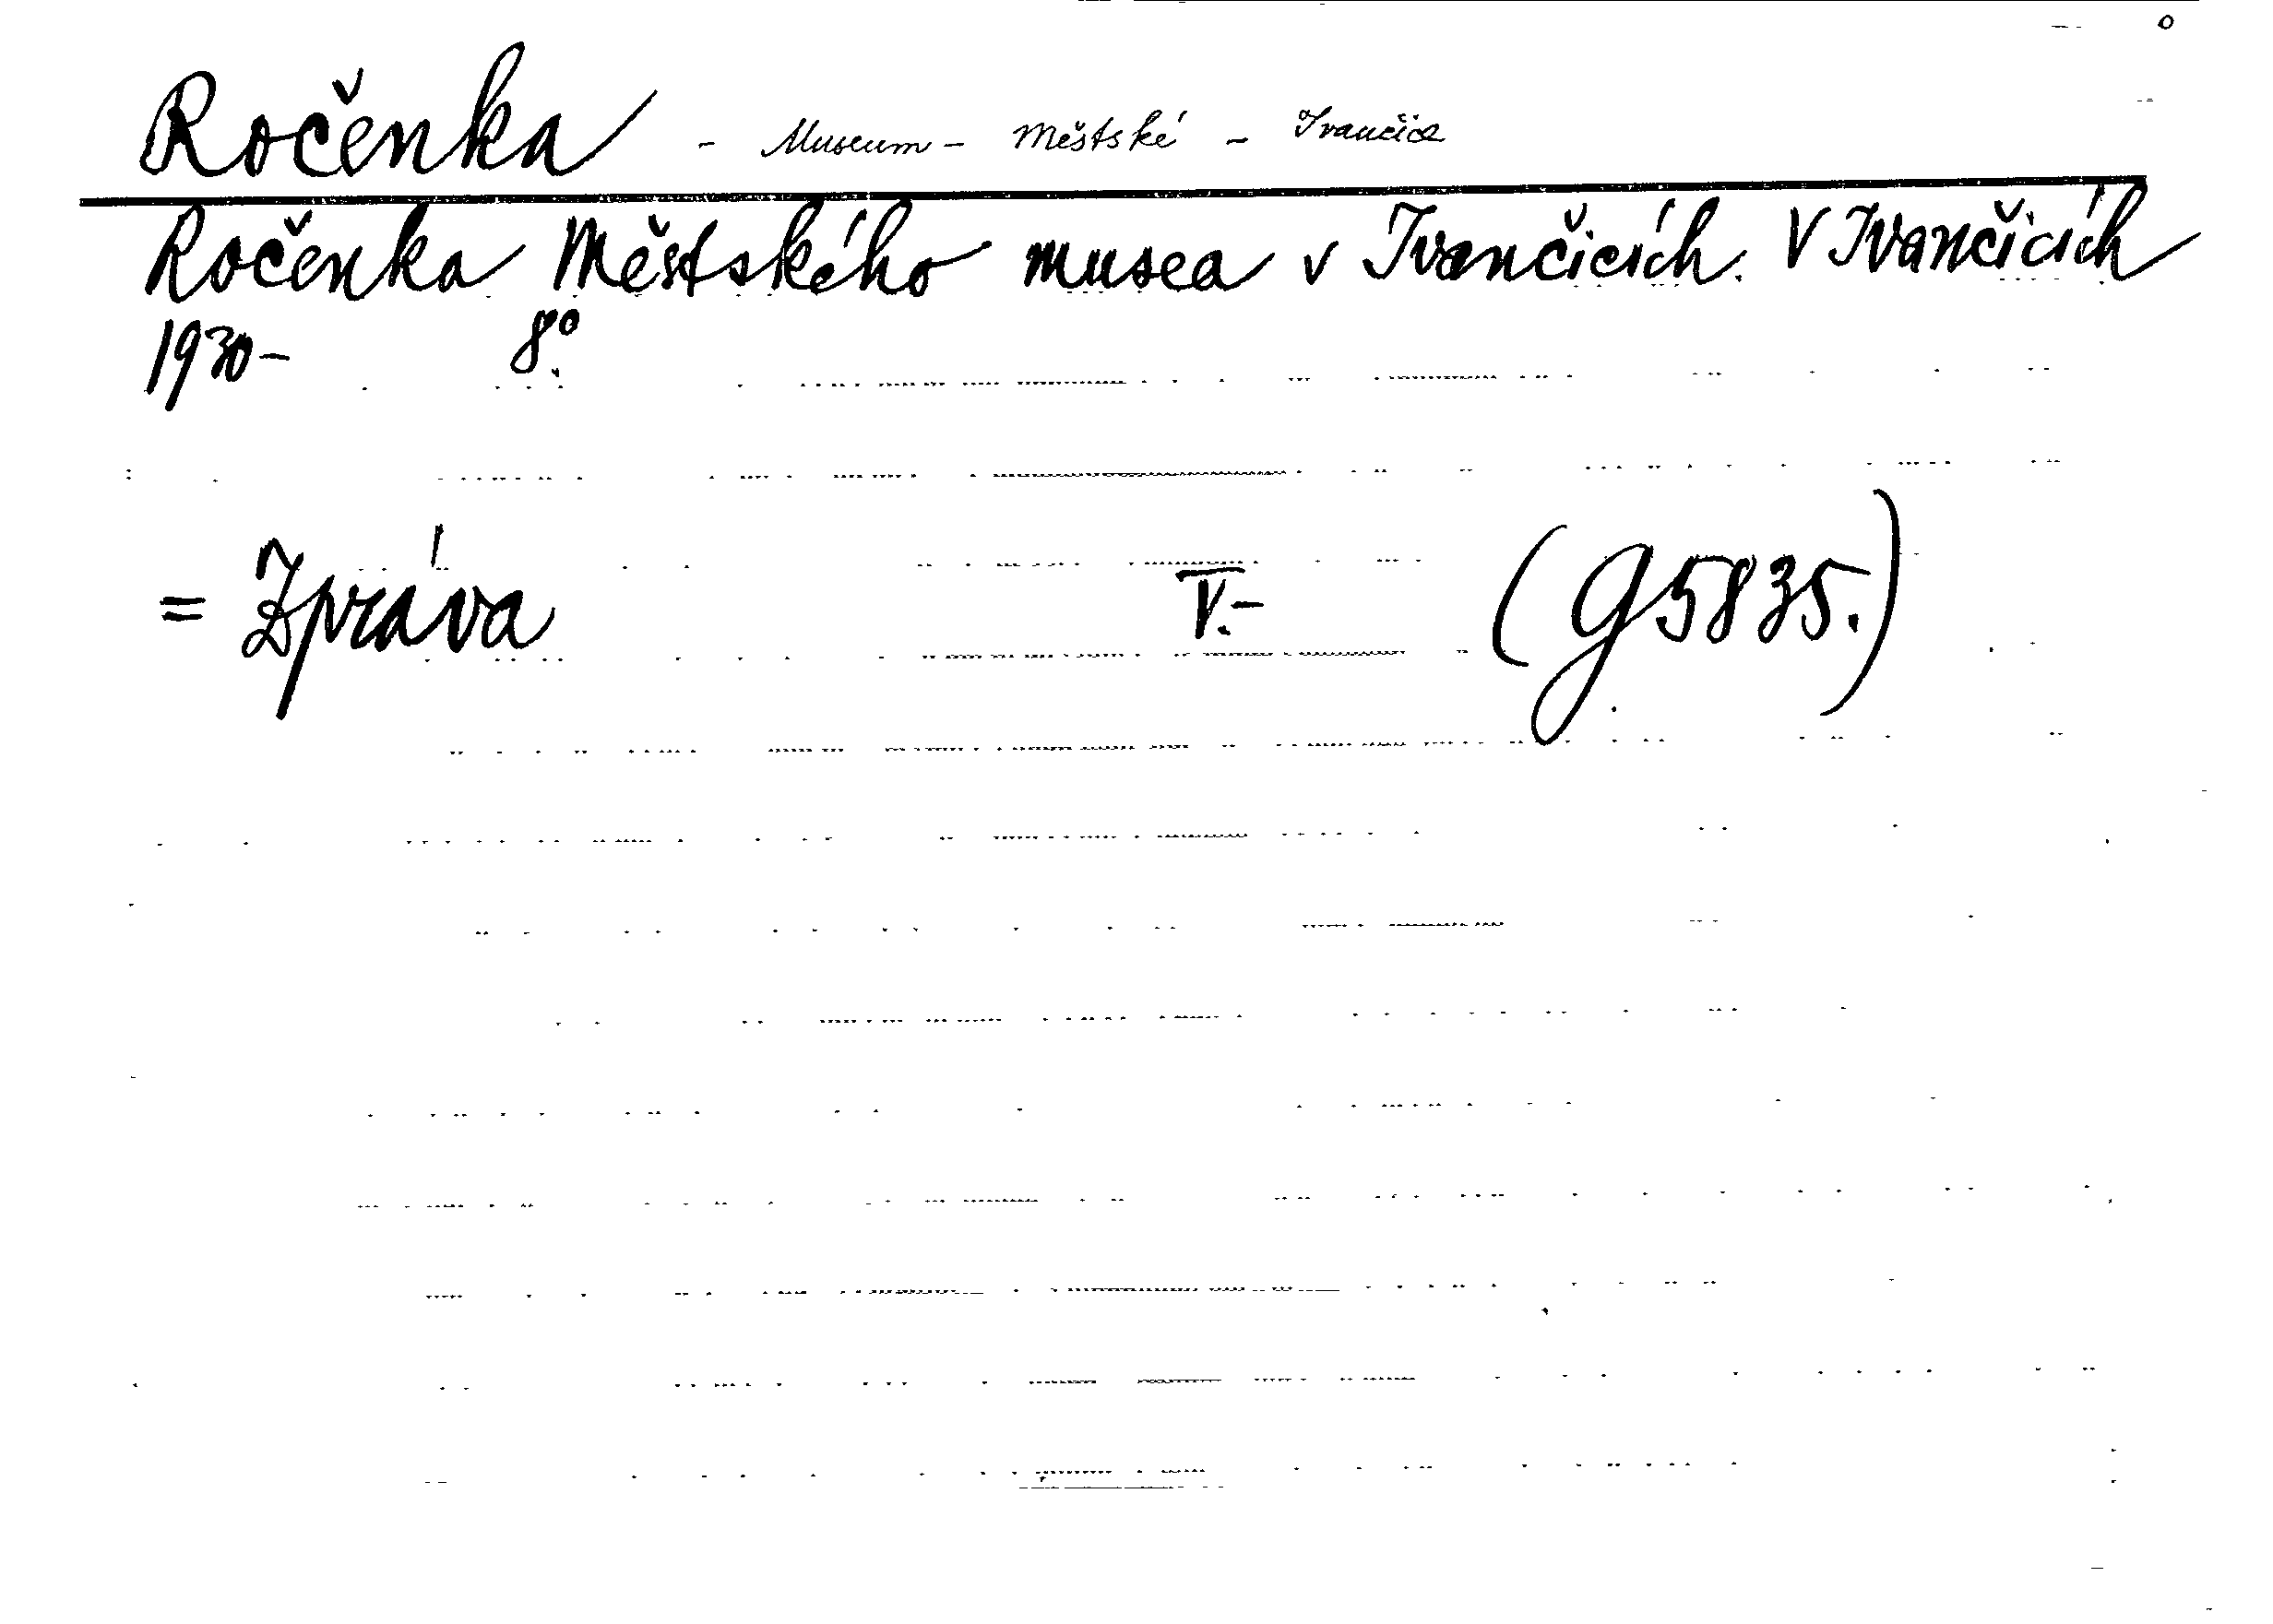 Ročenka - Museum - Městské - Ivančice
Ročenka Městského musea v Ivančicích. V Ivančicích
1930- 8°.
= Zpráva V.- (G5835.)